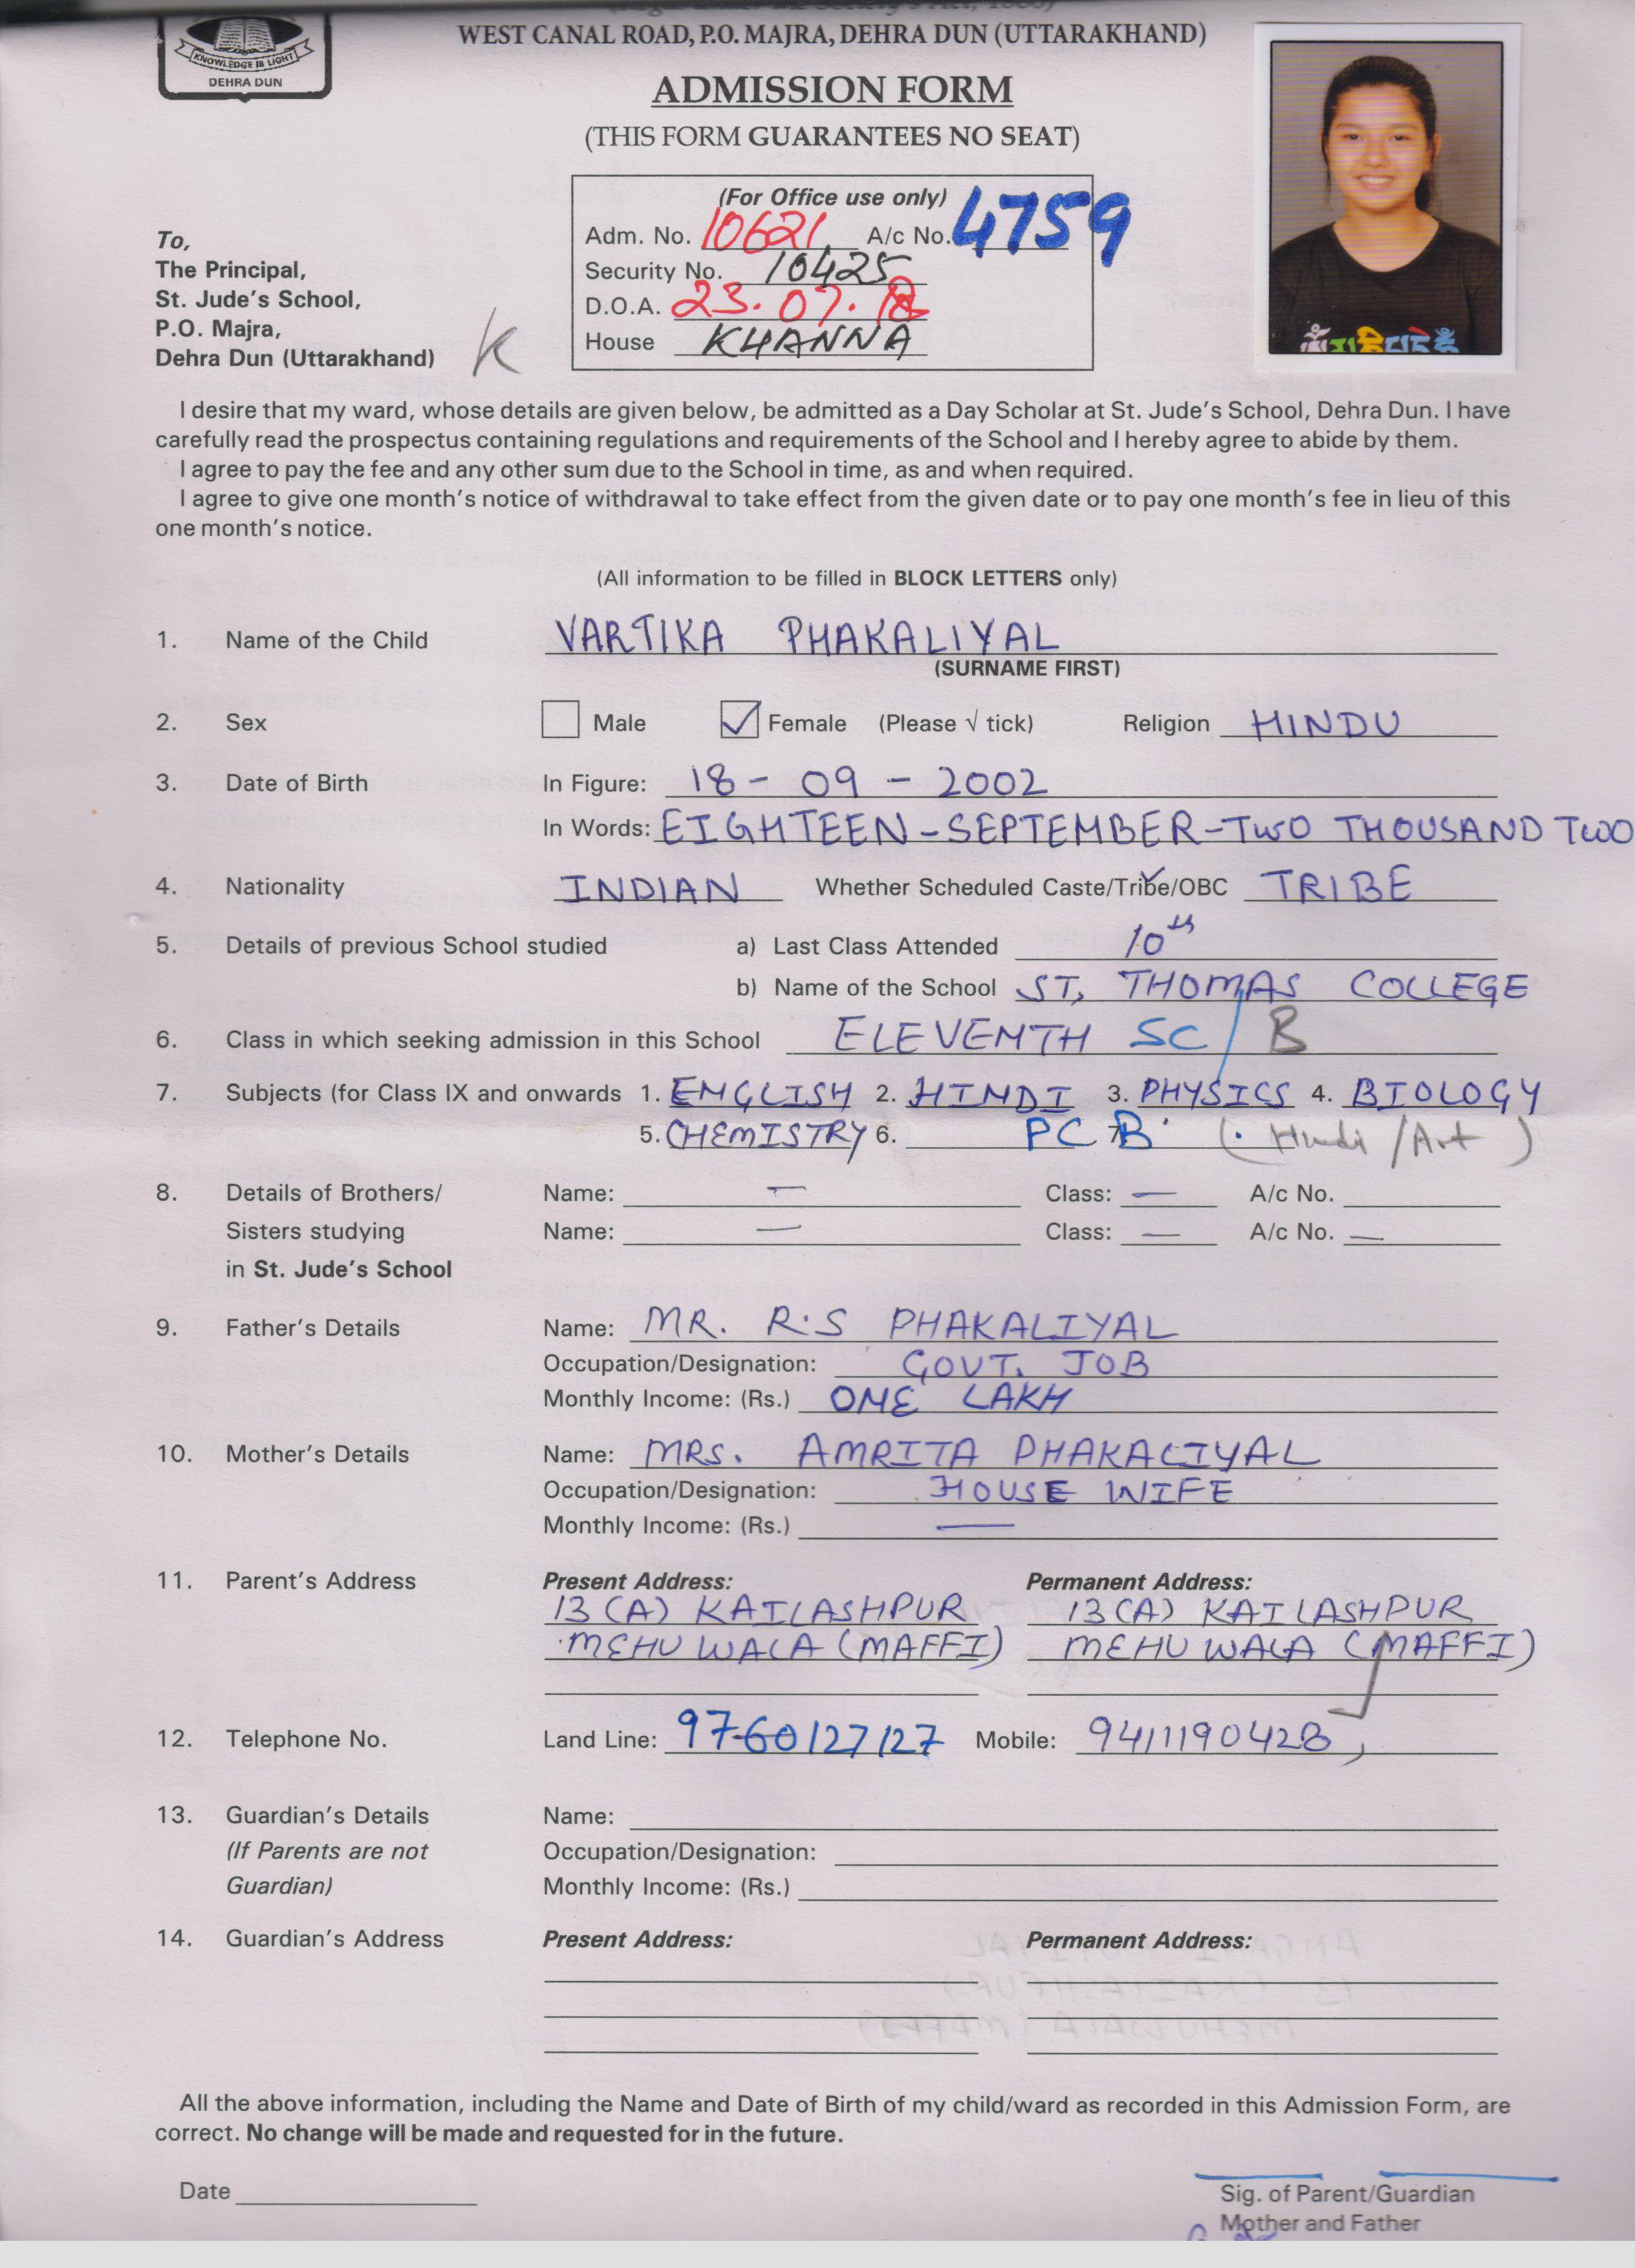 WEST CANAL ROAD, P.O. MAJRA, DEHRA DUN (UTTARAKHAND)
KNOWLEDGE IS LIGHT
DEHRA DUN
ADMISSION FORM
(THIS FORM GUARANTEES NO SEAT)
(For Office use only)
Adm. No. 10621 A/c No. 4759
Security No. 10425
D.O.A. 23.07.18
House KHANNA
To,
The Principal,
St. Jude's School,
P.O. Majra,
Dehra Dun (Uttarakhand) K
I desire that my ward, whose details are given below, be admitted as a Day Scholar at St. Jude's School, Dehra Dun. I have
carefully read the prospectus containing regulations and requirements of the School and I hereby agree to abide by them.
I agree to pay the fee and any other sum due to the School in time, as and when required.
I agree to give one month's notice of withdrawal to take effect from the given date or to pay one month's fee in lieu of this
one month's notice.
(All information to be filled in BLOCK LETTERS only)
1. Name of the Child VARTIKA PHAKALIYAL
(SURNAME FIRST)
2. Sex Male Female (Please √ tick) Religion HINDU
3. Date of Birth In Figure: 18-09-2002
In Words: EIGHTEEN-SEPTEMBER-TWO THOUSAND TWO
4. Nationality INDIAN Whether Scheduled Caste/Tribe/OBC TRIBE
5. Details of previous School studied a) Last Class Attended 10th
b) Name of the School ST. THOMAS COLLEGE
6. Class in which seeking admission in this School ELEVENTH SC/B
7. Subjects (for Class IX and onwards 1. ENGLISH 2. HINDI 3. PHYSICS 4. BIOLOGY
5. CHEMISTRY 6. PC 7. B (Hindi/Art)
8. Details of Brothers/ Name: — Class: — A/c No.
Sisters studying Name: — Class: — A/c No. —
in St. Jude's School
9. Father's Details Name: MR. R.S PHAKALIYAL
Occupation/Designation: GOVT. JOB
Monthly Income: (Rs.) ONE LAKH
10. Mother's Details Name: MRS. AMRITA PHAKALIYAL
Occupation/Designation: HOUSE WIFE
Monthly Income: (Rs.) —
11. Parent's Address Present Address: Permanent Address:
13(A) KAILASHPUR 13(A) KAILASHPUR
MEHUWALA (MAFFI) MEHUWALA (MAFFI)
12. Telephone No. Land Line: 9760127127 Mobile: 9411190428,
13. Guardian's Details Name:
(If Parents are not Occupation/Designation:
Guardian) Monthly Income: (Rs.)
14. Guardian's Address Present Address: Permanent Address:
All the above information, including the Name and Date of Birth of my child/ward as recorded in this Admission Form, are
correct. No change will be made and requested for in the future.
Date
Sig. of Parent/Guardian
Mother and Father